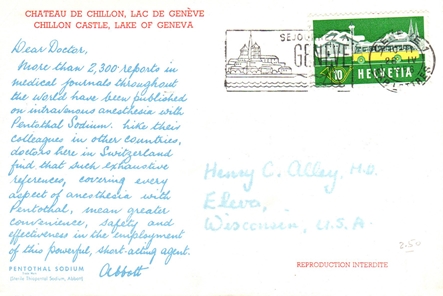 CHATEAU DE CHILLON, LAC DE GENÈVE
CHILLON CASTLE, LAKE OF GENEVA
Dear Doctor,
More than 2,300 reports in
medical journals throughout
the world have been published
on intravenous anesthesia with
Pentothal Sodium. Like their
colleagues in other countries,
doctors here in Switzerland
find that such exhaustive
references, covering every
aspect of anesthesia with
Pentothal, mean greater
convenience, safety and
effectiveness in the employment
of this powerful, short-acting agent.
Abbott
PENTOTHAL SODIUM
(Sterile Thiopental Sodium, Abbott)
GENÈVE
10 HELVETIA
Henry C. Alley, M.D.
Eleva,
Wisconsin, U.S.A.
2.50
REPRODUCTION INTERDITE